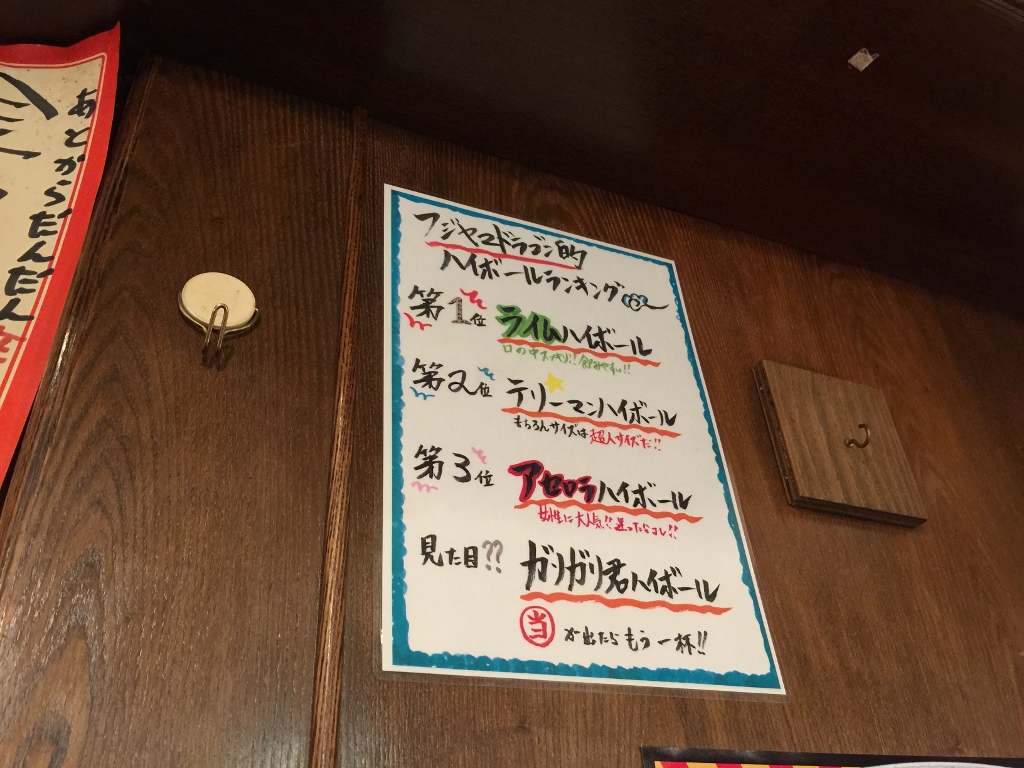 あとからだんだん
フジヤマドラゴン的
ハイボールランキング
第1位 ライムハイボール
口の中スッキリ!!飲みやすい!!
第2位 テリーマンハイボール
もちろんサイズは超人サイズだ!!
第3位 アセロラハイボール
女性に大人気!!迷ったらコレ!!
見た目?? ガリガリ君ハイボール
当が出たらもう一杯!!